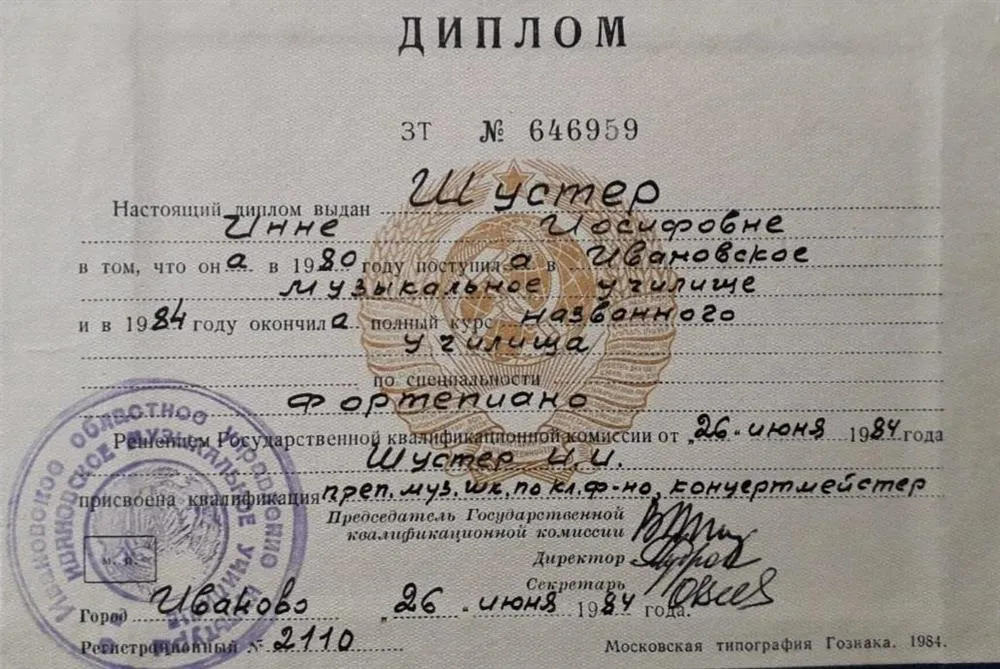 ДИПЛОМ
ЗТ № 646959
Настоящий диплом выдан Шустер
Инне Иосифовне
в том, что она в 1980 году поступила в Ивановское
музыкальное училище
и в 1984 году окончила полный курс названного
училища
по специальности
Фортепиано
Решением Государственной квалификационной комиссии от „26“ июня 1984 года
Шустер И.И.
присвоена квалификация преп. муз. шк. по кл. ф-но, концертмейстер
Председатель Государственной
квалификационной комиссии
Директор
Секретарь
м. п.
Город Иваново „26“ июня 1984 года.
Регистрационный № 2110
Московская типография Гознака. 1984.